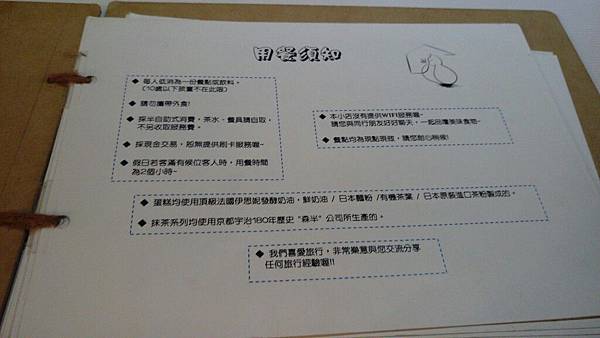 用餐須知
◆ 每人低消為一份餐點或飲料。
(10歲以下孩童不在此限)
◆ 請勿攜帶外食!
◆ 採半自助式消費,茶水、餐具請自取,
不另收取服務費。
◆ 採現金交易,恕無提供刷卡服務喔~
◆ 假日若客滿有候位客人時,用餐時間
為2個小時~
◆ 本小店沒有提供WIFI服務喔~
請您與同行朋友好好聊天,一起品嚐美味食物~
◆ 餐點均為現點現做,請您耐心稍候!
◆ 蛋糕均使用頂級法國伊思妮發酵奶油,鮮奶油 / 日本麵粉 /有機茶葉 / 日本原裝進口茶粉製成的。
◆ 抹茶系列均使用京都宇治180年歷史 "森半" 公司所生產的。
◆ 我們喜愛旅行,非常樂意與您交流分享
任何旅行經驗喔!!